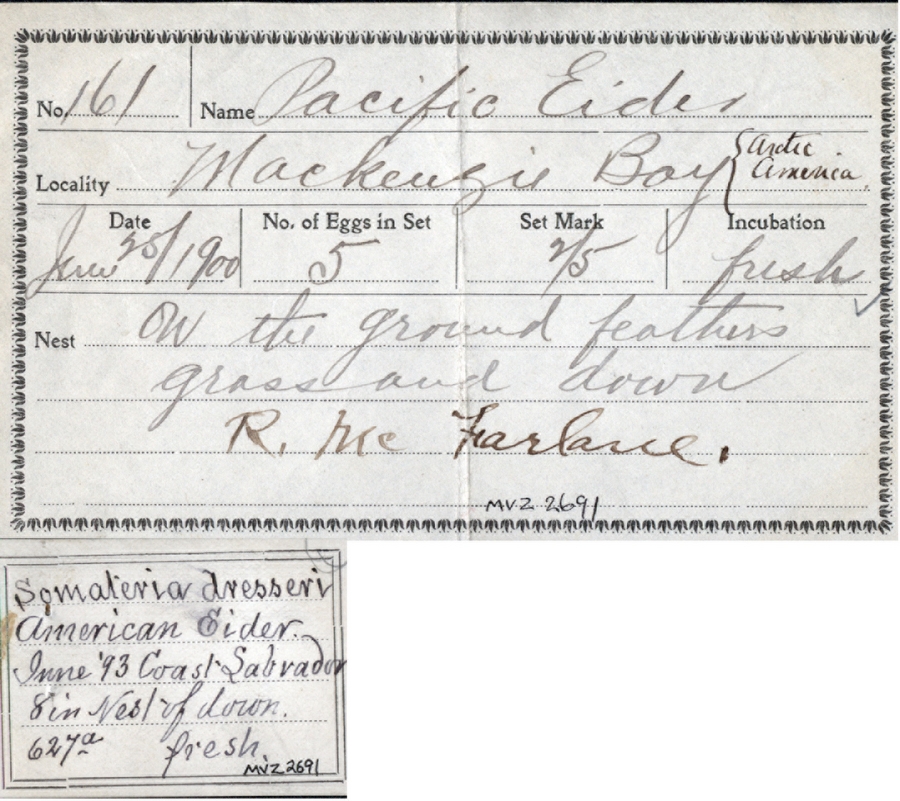 No. 161 Name Pacific Eider
Locality Mackenzie Bay { Arctic America
Date No. of Eggs in Set Set Mark Incubation
June 25/1900 5 2/5 fresh
Nest On the ground feathers
grass and down
R. McFarlane.
MVZ 2691
Somateria dresseri
American Eider.
June '93 Coast Labrador
8 in Nest of down.
627a fresh.
MVZ 2691